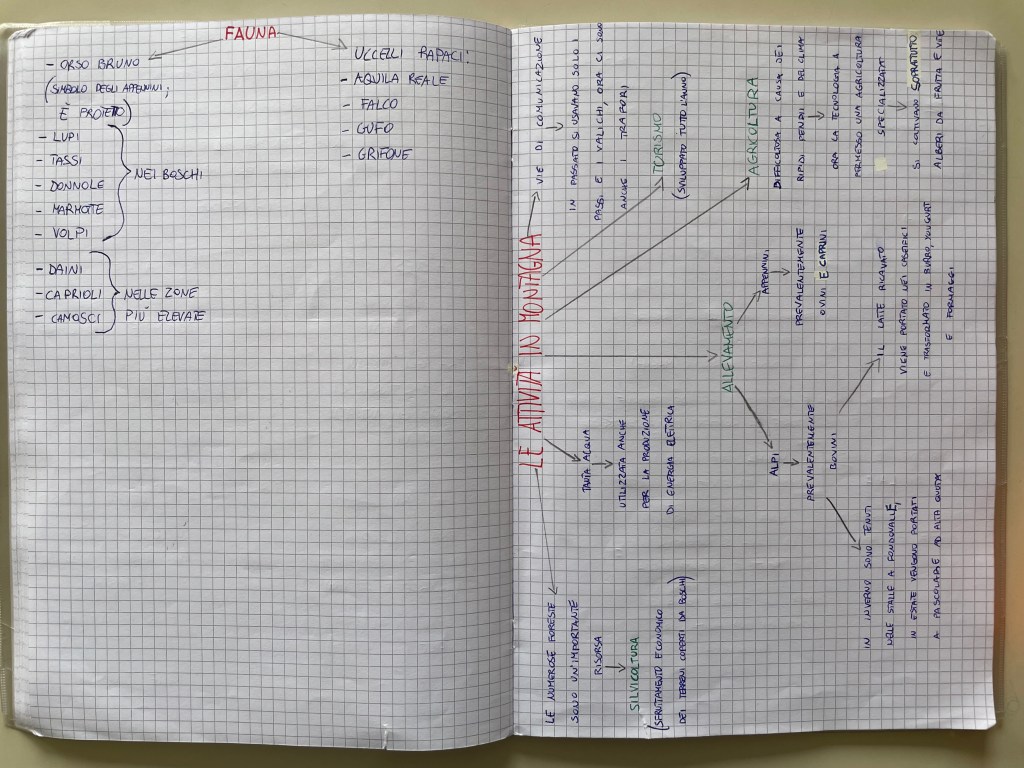 FAUNA
- ORSO BRUNO
(SIMBOLO DEGLI APPENNINI,
È PROTETTO)
- LUPI
- TASSI
- DONNOLE
- MARMOTTE
- VOLPI
NEI BOSCHI
- DAINI
- CAPRIOLI
- CAMOSCI
NELLE ZONE
PIÙ ELEVATE
UCCELLI RAPACI:
- AQUILA REALE
- FALCO
- GUFO
- GRIFONE
LE ATTIVITÀ IN MONTAGNA
LE NUMEROSE FORESTE
SONO UN'IMPORTANTE
RISORSA
SILVICOLTURA
(SFRUTTAMENTO ECONOMICO
DEI TERRENI COPERTI DA BOSCHI)
TANTA ACQUA
UTILIZZATA ANCHE
PER LA PRODUZIONE
DI ENERGIA ELETTRICA
ALLEVAMENTO
ALPI
PREVALENTEMENTE
BOVINI
IN INVERNO SONO TENUTI
NELLE STALLE A FONDOVALLE,
IN ESTATE VENGONO PORTATI
A PASCOLARE AD ALTA QUOTA
IL LATTE RICAVATO
VIENE PORTATO NEI CASEIFICI
E TRASFORMATO IN BURRO, YOUGURT
E FORMAGGI
APPENNINI
PREVALENTEMENTE
OVINI E CAPRINI
AGRICOLTURA
DIFFICOLTOSA A CAUSA DEI
RIPIDI PENDII E DEL CLIMA
ORA LA TECNOLOGIA A
PERMESSO UNA AGRICOLTURA
SPECIALIZZATA
SI COLTIVANO SOPRATUTTO
ALBERI DA FRUTTA E VITE
TURISMO
(SVILUPPATO TUTTO L'ANNO)
VIE DI COMUNICAZIONE
IN PASSATO SI USAVANO SOLO I
PASSI E I VALICHI, ORA CI SONO
ANCHE I TRAFORI